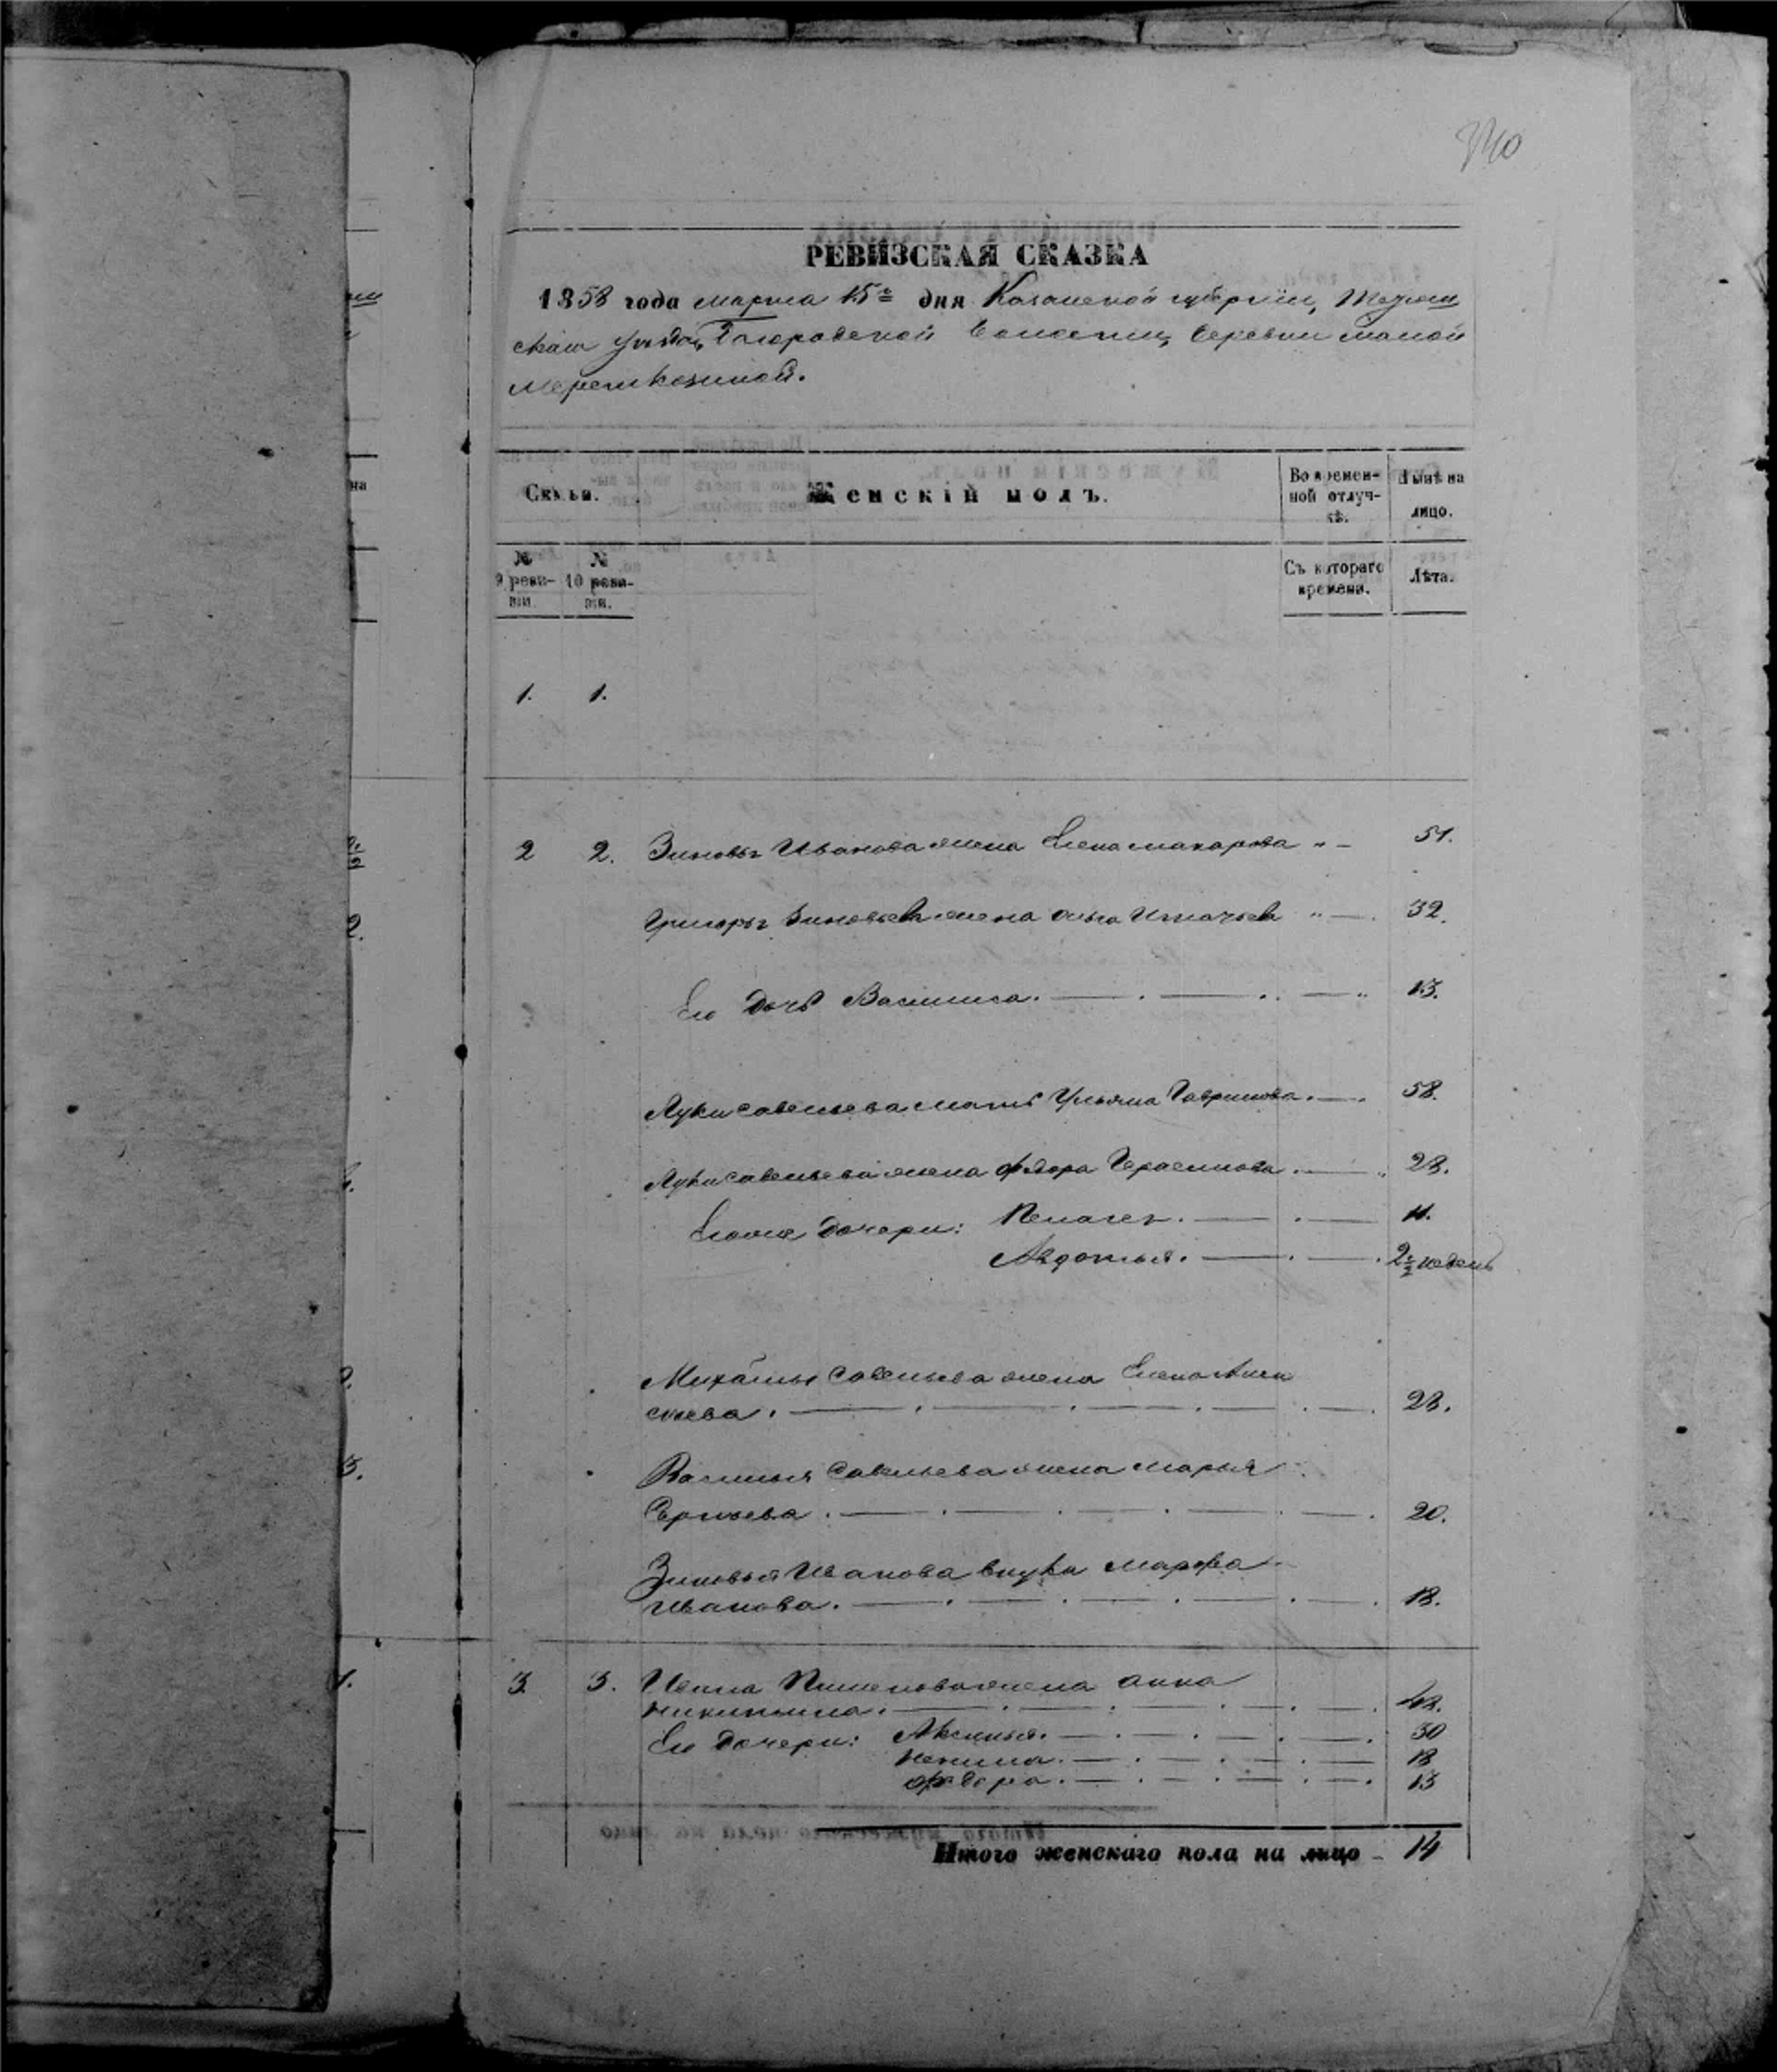 340
РЕВИЗСКАЯ СКАЗКА
1858 года марта 15го дня Казанской губернии, Тетюш
скаго уѣзда, Богородской волости, деревни малой
Мереткозиной.
Семьи.
Женскій полъ.
Во времен-
ной отлуч-
кѣ.
Нынѣ на
лицо.
№
9 реви-
зіи.
№
10 реви-
зіи.
Съ котораго
времени.
Лѣта.
1. 1.
2 2. Зиновья Иванова жена Елена макарова " – 51.
Григорья Зиновьева жена ольга Игнатьева " – 32.
Его дочь Василиса. – 13.
Луки савельева мать Ульяна Гаврилова. – 58.
Луки савельева жена федора Герасимова. – 28.
Его же дочери: Пелагея. – 11.
Авдотья. – 2½ недель
Михайлы Савельева жена Елена
сиева. – 28.
Василья Савельева жена марья
Сергѣева. – 20.
Зиновья Иванова внука марфа
Иванова. – 18.
3. 3. Ивана Пименова жена анна
никитина. – 48.
Его дочери: Аксинья. – 30
ненила. – 18
федора. – 13
Итого женскаго пола на лицо – 14